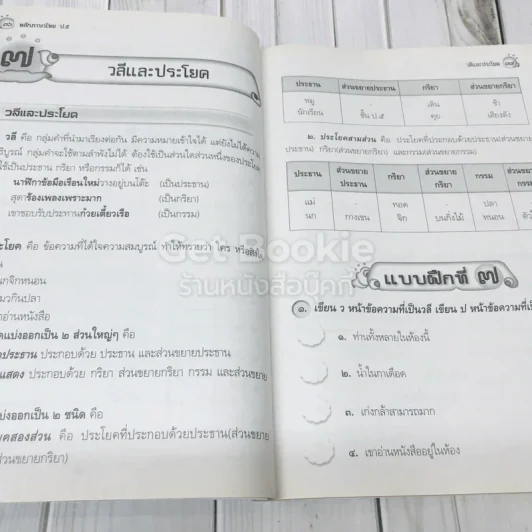 ๓๖ หลักภาษาไทย ป.๕
๗
วลีและประโยค
วลีและประโยค
วลี คือ กลุ่มคำที่นำมาเรียงต่อกัน มีความหมายเข้าใจได้ แต่ยังไม่ได้ความ
บูรณ์ กลุ่มคำจะใช้ตามลำพังไม่ได้ ต้องใช้เป็นส่วนใดส่วนหนึ่งของประโยค
ใช้เป็นประธาน กริยา หรือกรรมก็ได้ เช่น
นาฬิกาข้อมือเรือนใหม่วางอยู่บนโต๊ะ (เป็นประธาน)
สุดาร้องเพลงเพราะมาก (เป็นกริยา)
เขาชอบรับประทานก๋วยเตี๋ยวเรือ (เป็นกรรม)
ะโยค คือ ข้อความที่ได้ความสมบูรณ์ ทำให้ทราบว่า ใคร หรือสิ่งใด
น
นกจิกหนอน
มวกินปลา
าอ่านหนังสือ
คแบ่งออกเป็น ๒ ส่วนใหญ่ๆ คือ
ประธาน ประกอบด้วย ประธาน และส่วนขยายประธาน
แสดง ประกอบด้วย กริยา ส่วนขยายกริยา กรรม และส่วนขยาย
บ่งออกเป็น ๒ ชนิด คือ
ยคสองส่วน คือ ประโยคที่ประกอบด้วยประธาน(ส่วนขยาย
ส่วนขยายกริยา)
วลีและประโยค
ประธาน ส่วนขยายประธาน กริยา ส่วนขยายกริยา
หมู เดิน ช้า
นักเรียน ชั้น ป.๕ คุย เสียงดัง
๒. ประโยคสามส่วน คือ ประโยคที่ประกอบด้วยประธาน(ส่วนขยาย
ประธาน) กริยา(ส่วนขยายกริยา) และกรรม(ส่วนขยายกรรม)
ประธาน ส่วนขยายประธาน กริยา ส่วนขยายกริยา กรรม ส่วน
แม่ ทอด ปลา
นก กางเขน จิก บนกิ่งไม้ หนอน ตัว
แบบฝึกที่ ๗
๑. เขียน ว หน้าข้อความที่เป็นวลี เขียน ป หน้าข้อความที่เป็
๑. ท่านทั้งหลายในห้องนี้
๒. น้ำในกาเดือด
๓. เก่งกล้าสามารถมาก
๔. เขาอ่านหนังสืออยู่ในห้อง
Get Bookie
ร้านหนังสือบุ๊คกี้